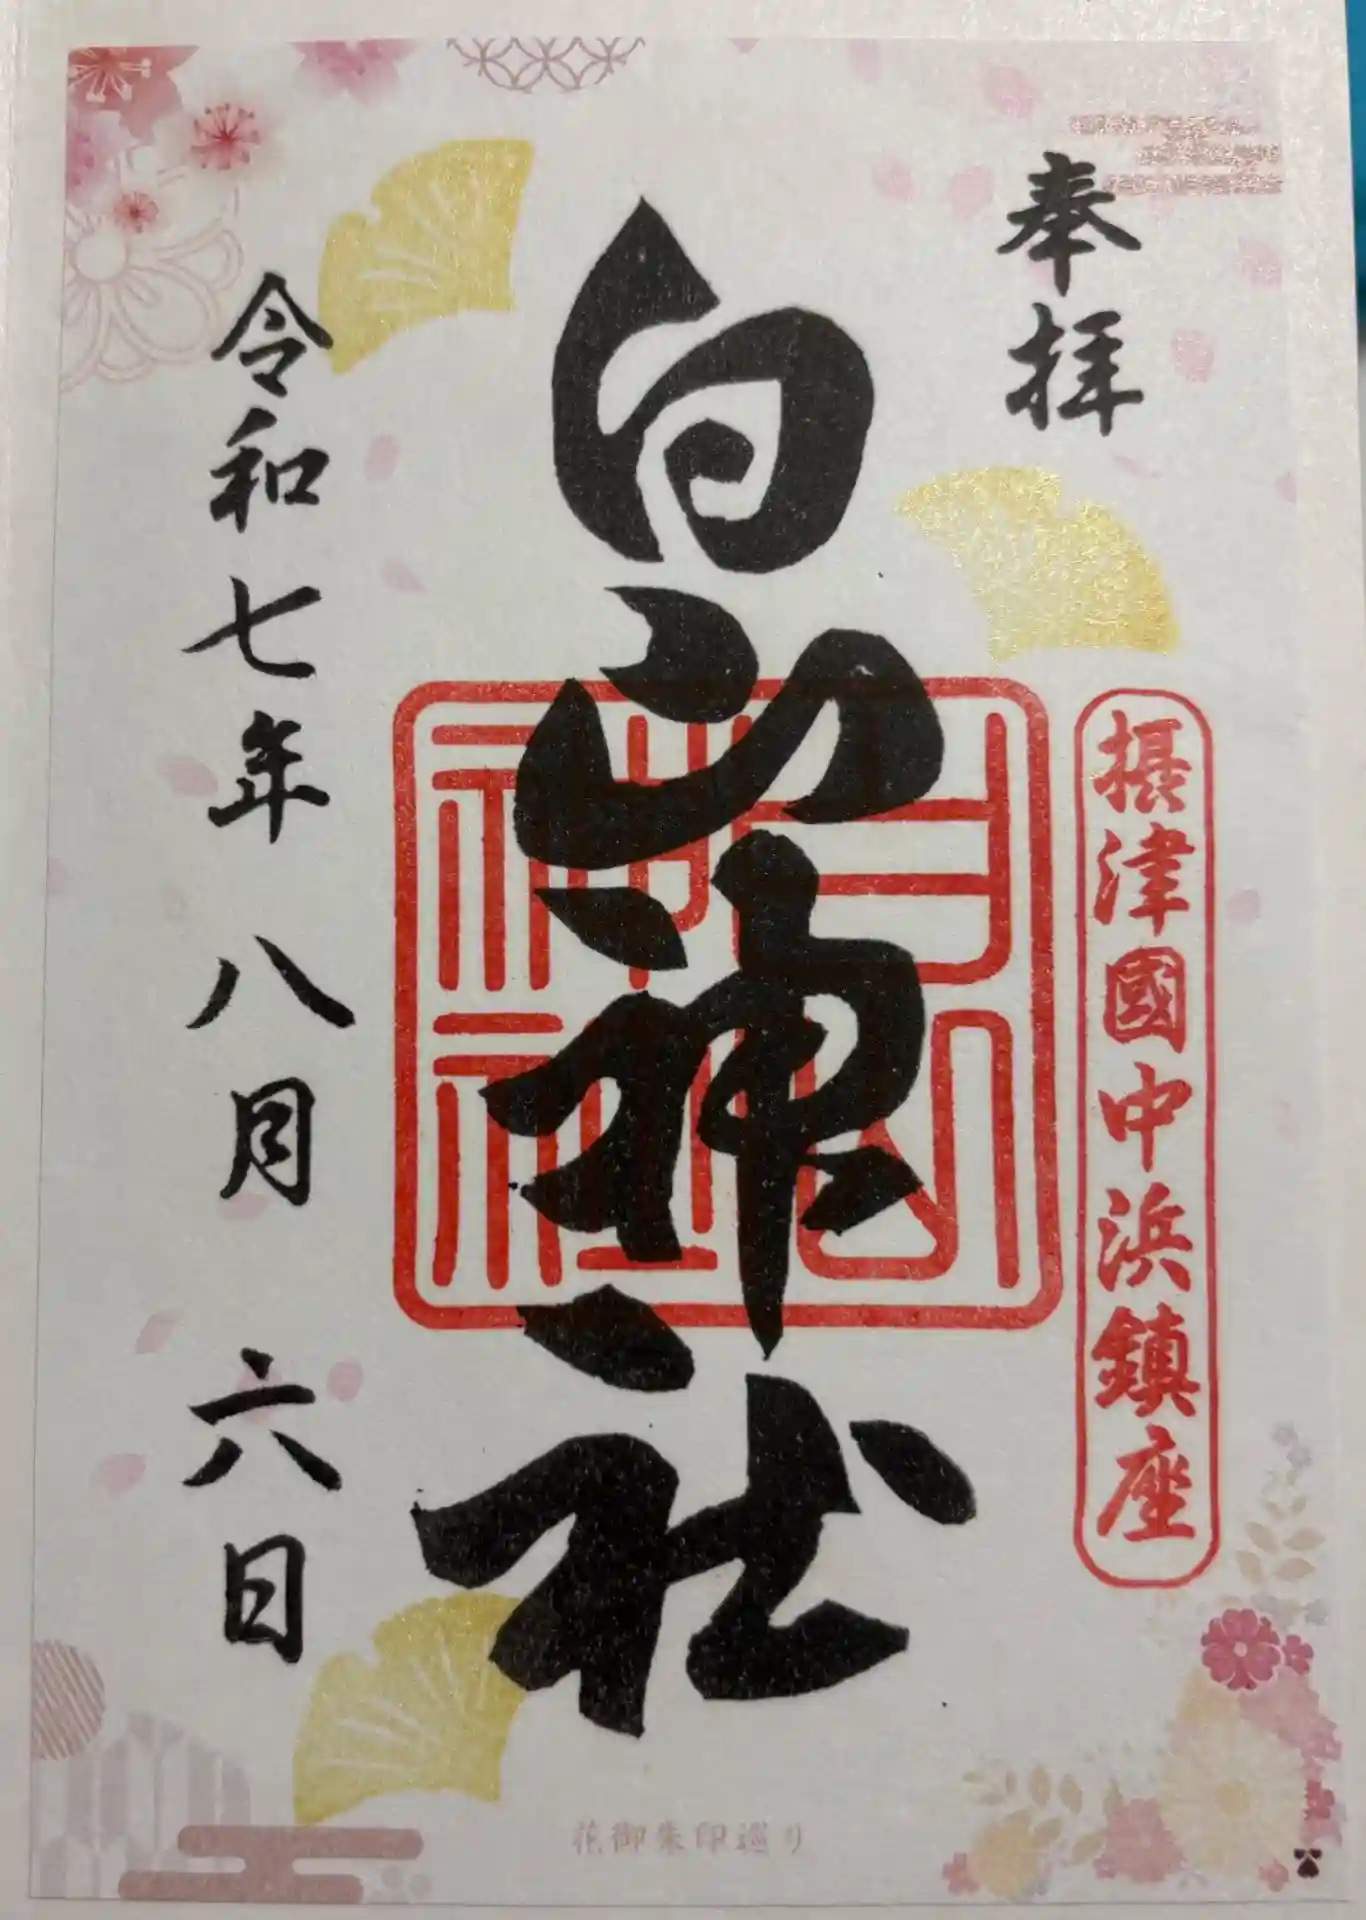 奉拝
摂津國中浜鎮座
白山神社
白山神社
令和七年 八月 六日
花御朱印巡り